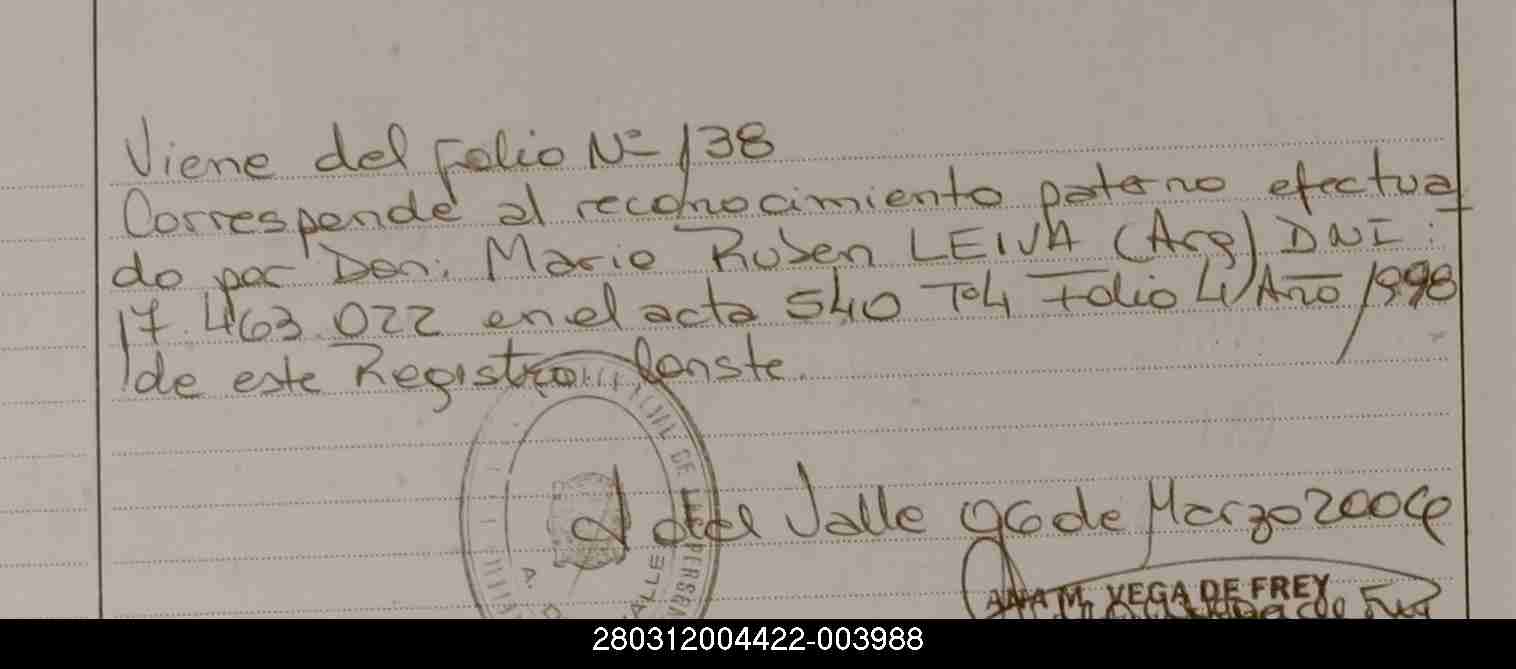 Viene del Folio Nº 138
Corresponde al reconocimiento paterno efectua
do por Don: Mario Ruben LEIVA (Arg) DNI:
17.463.022 en el acta 540 Tº4 Folio 4 Año 1998
de este Registro. Conste.
del Valle 06 de Marzo 200
CIVIL DE
PERSON
VALLE
ANA M. VEGA DE FREY
280312004422-003988